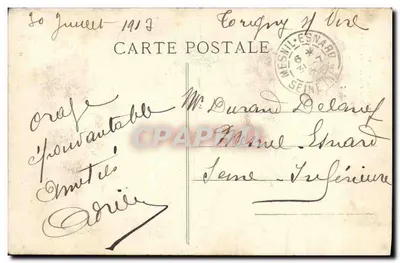 30 Juillet 1913 Torigny s/ Vire
CARTE POSTALE
MESNIL-ESNARD
SEINE
orage
épouvantable
Amitiés
Adrien
Mr. Durand Delanef
Mesnil Esnard
Seine Inférieure